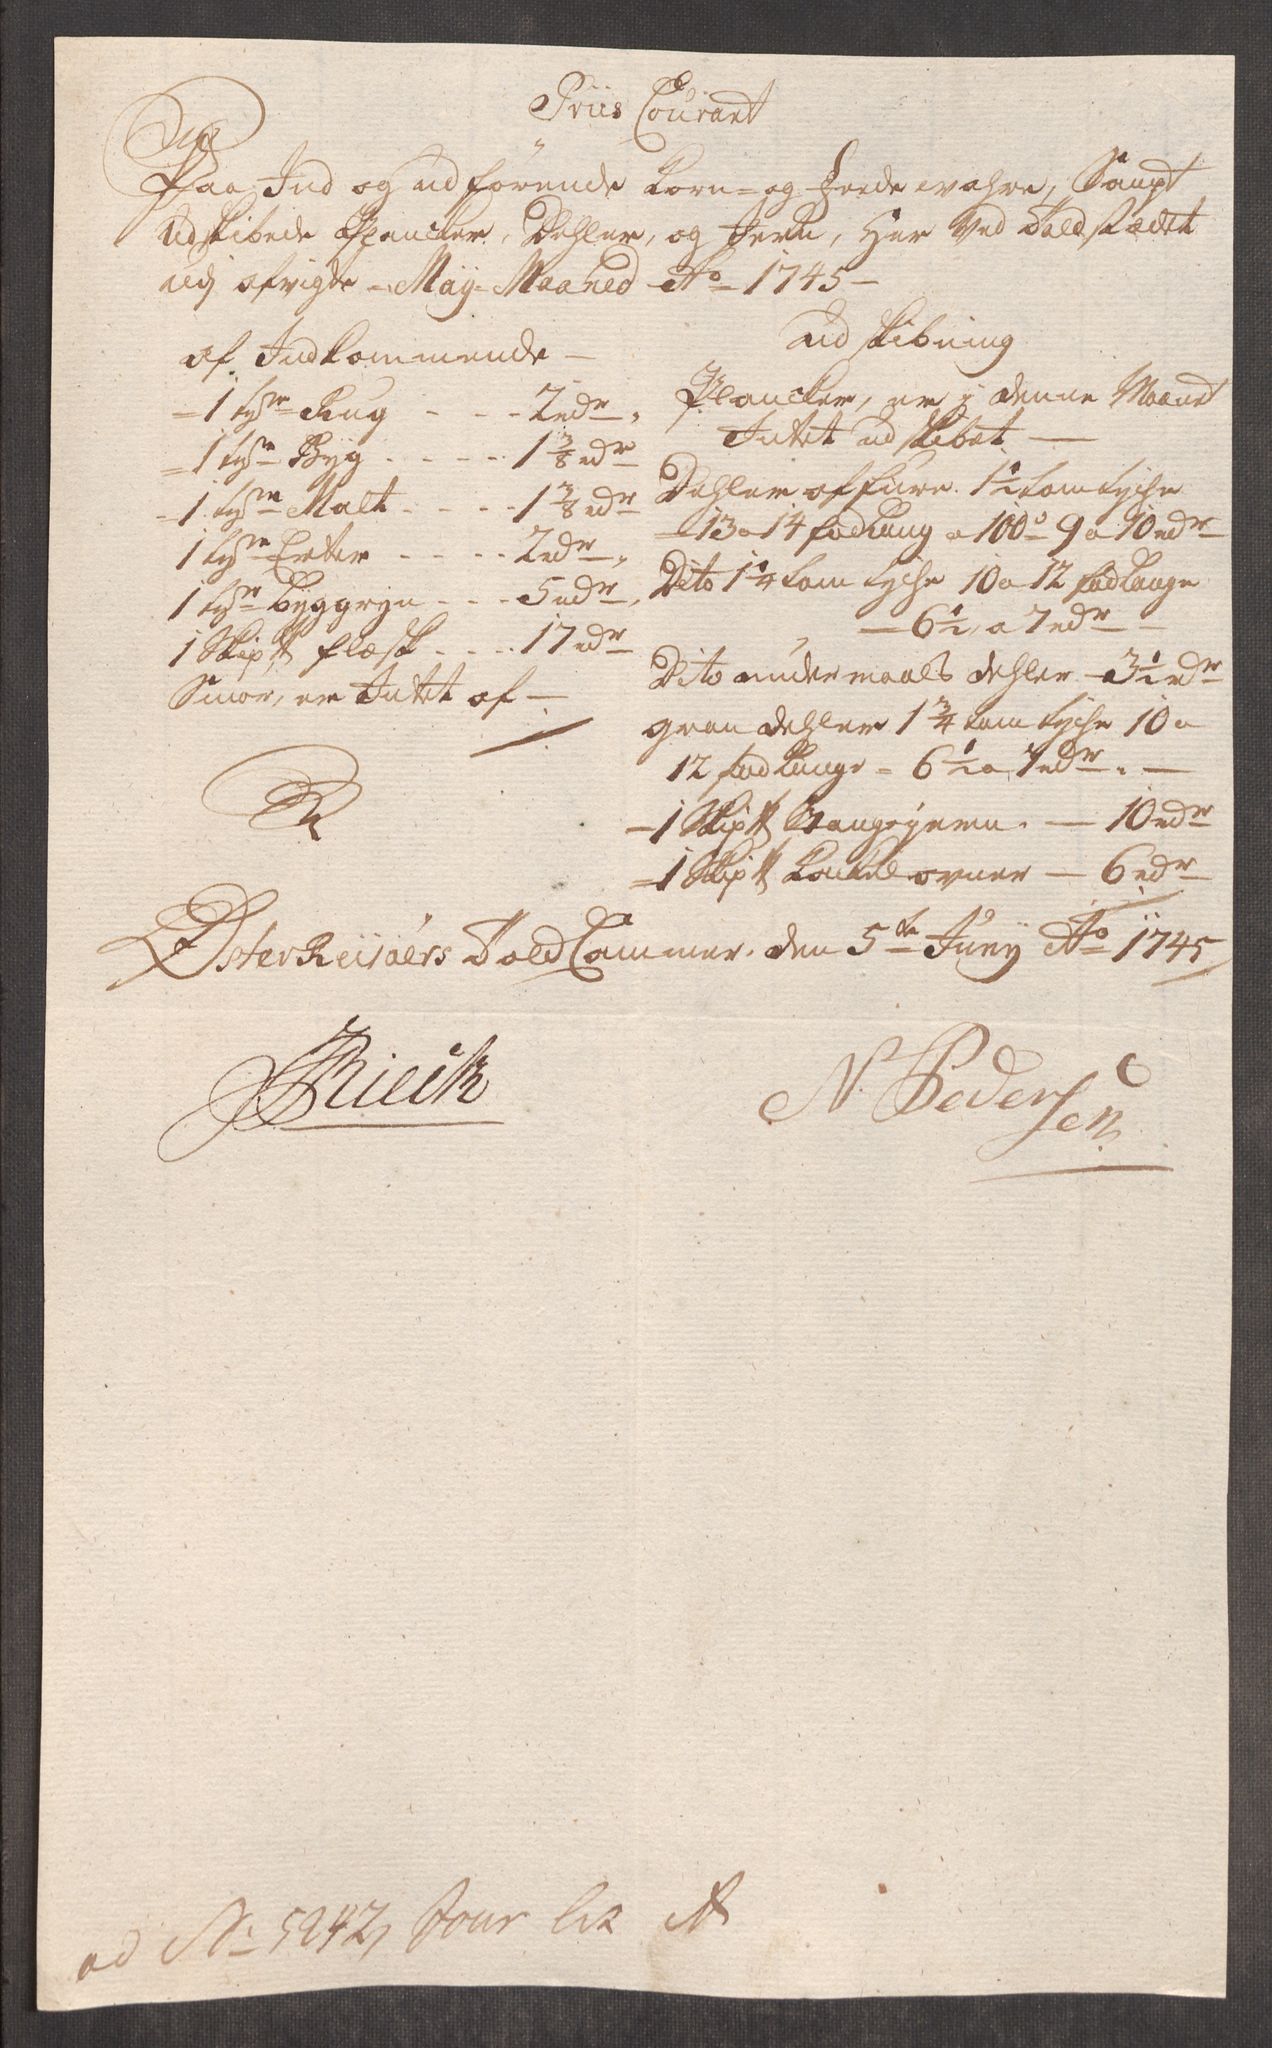 Priis Courant
Paa Ind og udförende Korn- og Feede wahre, Sampt
udskibede Plancker, Dehler, og Jern, Her Ved Toldstædet
udj afvigte May Maaned Ao 1745
af Indkommende
1 tøn Rug - - - 2 rdr
1 tøn Byg - - - - 1 3/8 rdr
1 tøn Malt - - - - 1 3/8 rdr
1 tøn Erter - - - - 2 rdr
1 tøn Byggryn - - - 5 rdr
1 Skip℔ flæsk - - - - 17 rdr
Smör, er Intet af
ud skibning
Plancker, er j denne Maanet
Intet udskibet
Dehler af fure 1 1/2 tom tyche
13 a 14 fod lang a 100 9 a 10 rdr
Dito 1 1/4 tom tyche 10 a 12 fod lange
6 1/2 a 7 rdr
Dito undermaals dehler 3 1/2 rdr
gran dehler 1 3/4 tom tyche 10 a
12 fod lange - 6 1/2 a 7 rdr
1 Skip℔ Stangejern - 10 rdr
1 Skip℔ Kackelovner - 6 rdr
Øster Reisöers Told Cammer den 5te Juny Ao 1745
N. Pedersen
ad No 5942 Jour